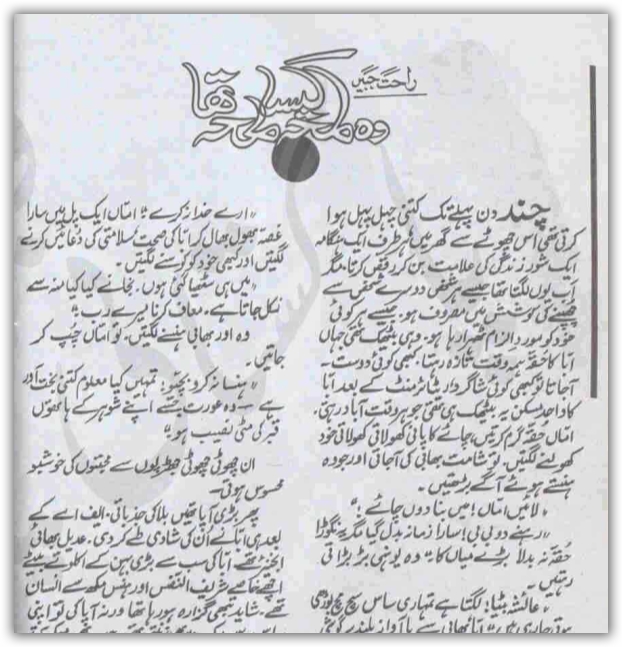 راحت جبیں
وہ لمحہ کیسا تھا
چند دن پہلے تک کتنی چہل پہل ہوا
کرتی تھی اس چھوٹے سے گھر میں ہر طرف ایک ہنگامہ
ایک شور زندگی کی علامت بن کر رقص کرتا، مگر
اب یوں لگتا تھا جیسے ہر شخص دوسرے شخص سے
چھپنے کی کوشش میں مصروف ہو۔ جیسے ہر کوئی
خود کو مورد الزام ٹھہرا رہا ہو۔ وہی بیٹھک تھی جہاں
ابا کا حقہ ہمہ وقت تازہ رہتا۔ کبھی کوئی دوست
آجاتا تو کبھی کوئی شاگرد، ریٹائرمنٹ کے بعد ابا
کا واحد مسکن یہ بیٹھک ہی تھی جو ہر وقت آباد رہتی۔
اماں حقہ گرم کرتیں، چائے کا پانی کھولاتی کھولاتی خود
کھولنے لگتیں۔ تو شامت بھابی کی آجاتی اور وہ
ہنستے ہوئے آگے بڑھتیں۔
"لائیں اماں! میں بنا دوں چائے۔"
"رہنے دو بی بی! سارا زمانہ بدل گیا مگر یہ نگوڑا
حقہ نہ بدلا بڑے میاں کا۔" وہ یونہی بڑبڑاتی
رہتیں۔
"عائشہ بیٹا! لگتا ہے تمہاری ساس سچ مچ بوڑھی
ہوتی جا رہی ہیں" ابا بھابی سے با آواز بلند
"ارے خدا نہ کرے۔" اماں ایک پل میں سارا
غصہ بھول بھال کر ابا کی صحت سلامتی کی دعائیں کرنے
لگتیں اور کبھی خود کو کوسنے لگتیں۔
"میں ہی سٹھیا گئی ہوں۔ نجانے کیا کیا منہ سے
نکل جاتا ہے۔ معاف کرنا میرے رب۔"
وہ اور بھابی ہنسنے لگتیں۔ تو اماں چپ کر
جاتیں۔
"ہنسا نہ کرو بچیو! تمہیں کیا معلوم کتنی بخت آور
ہے وہ عورت جسے اپنے شوہر کے ہاتھوں
قبر کی مٹی نصیب ہو۔"
ان چھوٹی چھوٹی جھڑپوں سے محبتوں کی خوشبو
محسوس ہوتی۔
پھر بڑی آپا تھیں بلا کی جذباتی۔ ایف اے کے
بعد ہی ابا نے ان کی شادی طے کر دی۔ عدیل بھائی
انجینئر تھے۔ ابا کی سب سے بڑی بہن کے اکلوتے بیٹے
اچھے خاصے شریف النفس اور ہنس مکھ سے انسان
تھے۔ شاید تبھی گزارہ ہو رہا تھا ورنہ آپا کی تو اپنی